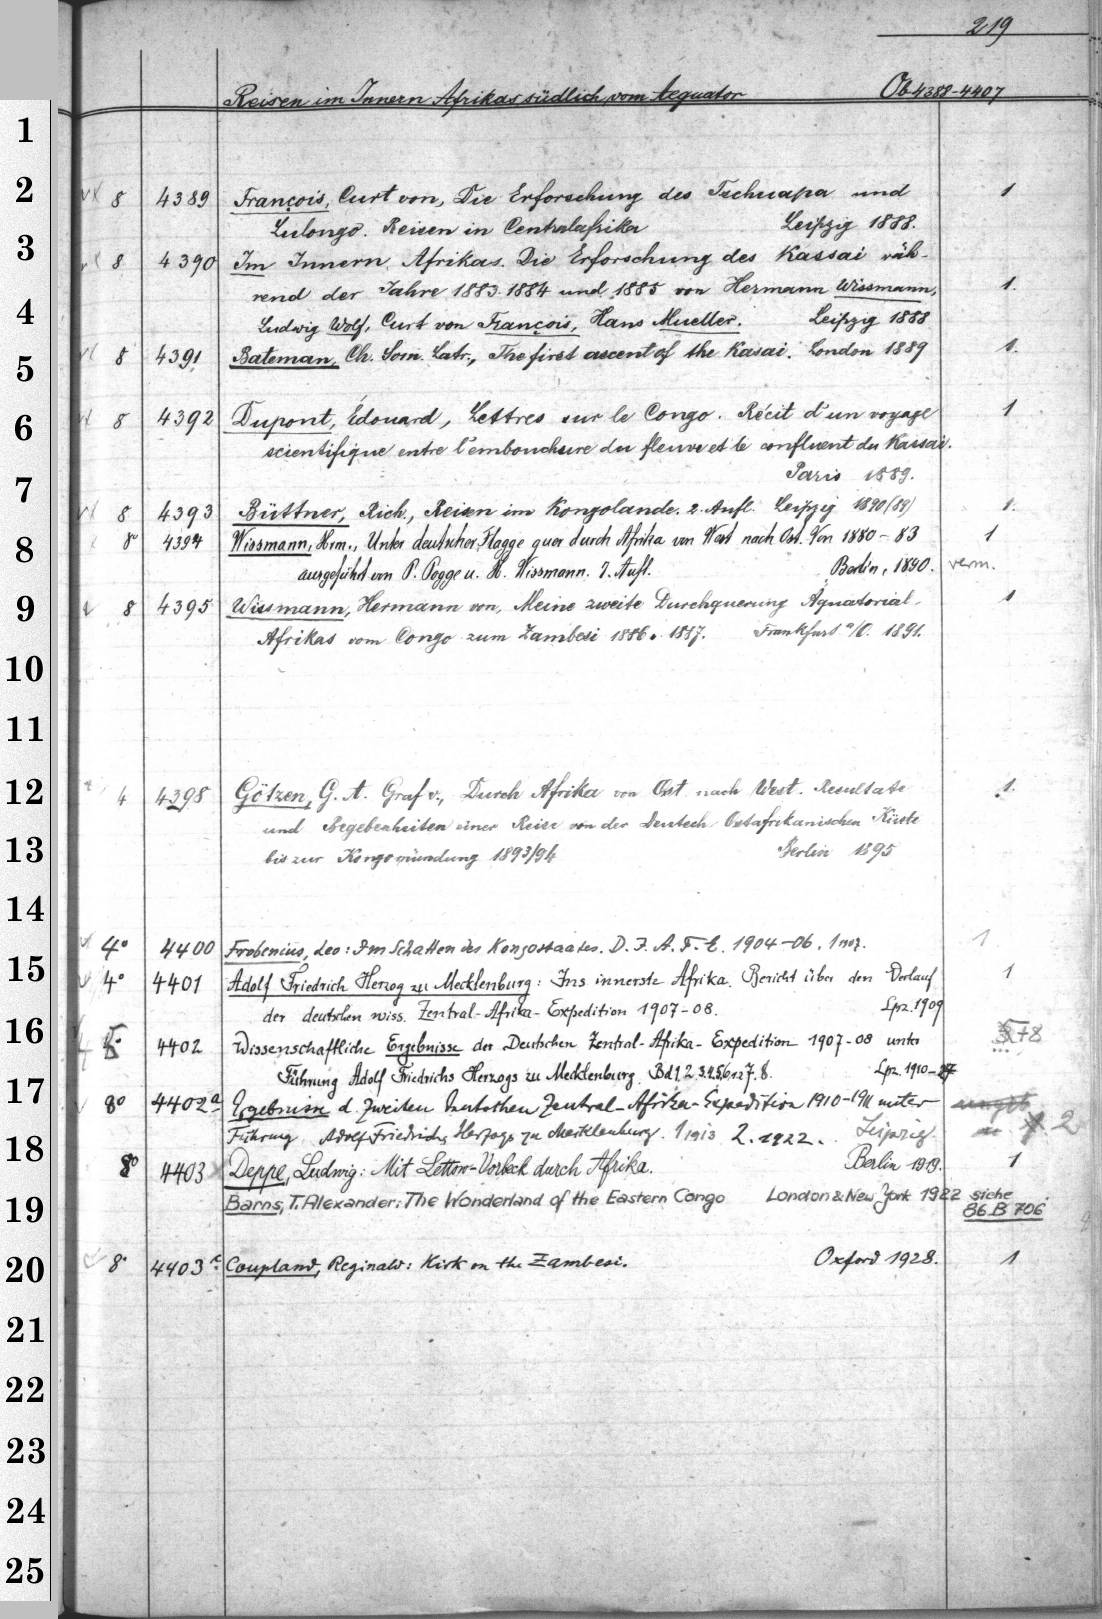 219
Reisen im Innern Afrikas südlich vom Aequator Ob 4388-4407
1
2
8 4389 François, Curt von, Die Erforschung des Tschuapa und 1
Lulongo. Reisen in Centralafrika Leipzig 1888.
3
8 4390 Im Innern Afrikas. Die Erforschung des Kassai wäh-
rend der Jahre 1883. 1884 und 1885 von Hermann Wissmann, 1.
4
Ludwig Wolf, Curt von François, Hans Mueller. Leipzig 1888
5
8 4391 Bateman, Ch. Som. Latr., The first ascent of the Kasai. London 1889 1.
6
8 4392 Dupont, Édouard, Lettres sur le Congo. Récit d'un voyage 1
scientifique entre l'embouchure du fleuve et le confluent du Kassai.
Paris 1889.
7
8 4393 Büttner, Rich., Reisen im Kongolande. 2. Aufl. Leipzig 1890 (89) 1.
8
8° 4394 Wissmann, Hrm., Unter deutscher Flagge quer durch Afrika von West nach Ost. Von 1880-83 1
ausgeführt von P. Pogge u. H. Wissmann. 7. Aufl. Berlin, 1890. verm.
9
8 4395 Wissmann, Hermann von, Meine zweite Durchquerung Äquatorial- 1
Afrikas vom Congo zum Zambesi 1886 u. 1887. Frankfurt a/O. 1891.
10
11
12
4 4398 Götzen, G. A. Graf v., Durch Afrika von Ost nach West. Resultate 1.
und Begebenheiten einer Reise von der Deutsch Ostafrikanischen Küste
13
bis zur Kongomündung 1893/94 Berlin 1895
14
4° 4400 Frobenius, Leo: Im Schatten des Kongostaates. D. I. A. F. E. 1904-06. 1907. 1
15
4° 4401 Adolf Friedrich Herzog zu Mecklenburg: Ins innerste Afrika. Bericht über den Verlauf 1
der deutschen wiss. Zentral-Afrika-Expedition 1907-08. Lpz. 1909
16
4402 Wissenschaftliche Ergebnisse der Deutschen Zentral-Afrika-Expedition 1907-08 unter 5+8
Führung Adolf Friedrichs Herzogs zu Mecklenburg. Bd 1. 2. 3. 4. 5. 6 7. 8. Lpz. 1910-27
17
8° 4402a Ergebnisse d. Zweiten Deutschen Zentral-Afrika-Expedition 1910-1911 unter
Führung Adolf Friedrichs Herzogs zu Mecklenburg. 1 1913 2. 1922. Leipzig. 2
18
8° 4403 Deppe, Ludwig: Mit Lettow-Vorbeck durch Afrika. Berlin 1919. 1
19
Barns, T. Alexander: The Wonderland of the Eastern Congo London & New York 1922 siehe
86. B 706
20
8° 4403a Coupland, Reginald: Kirk on the Zambesi. Oxford 1928. 1
21
22
23
24
25